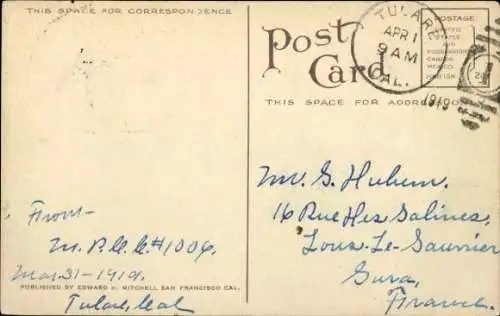 THIS SPACE FOR CORRESPONDENCE
Post
Card
THIS SPACE FOR ADDRESS
POSTAGE:
UNITED
STATES
AND
POSSESSIONS
CANADA
MEXICO
TULARE
APR 1
9 AM
CAL.
1919
From-
Mar. 31-1919.
Tulare, Cal
PUBLISHED BY EDWARD H. MITCHELL SAN FRANCISCO CAL.
Mr. G. Hubem.
16 Rue Des Salines,
Lons-Le-Saunier
Jura,
France.